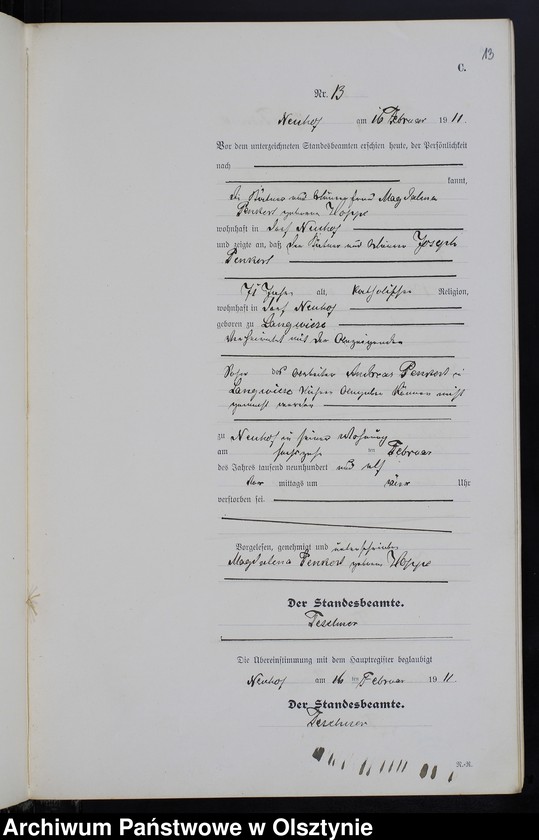 13
C.
Nr. 13
Neuhof am 16 Februar 1911.
Vor dem unterzeichneten Standesbeamten erschien heute, der Persönlichkeit
nach
kannt,
die Magdalena
geborene Hoppe
wohnhaft in Dorf Neuhof
und zeigte an, daß der Joseph
71 Jahre alt, katholischer Religion,
wohnhaft in Dorf Neuhof
geboren zu Langwiese
verheiratet mit der Anzeigenden
Sohn des Arbeiter Andreas
Langwiese Angaben können nicht
gemacht werden
zu Neuhof in seiner Wohnung
am sechszehn ten Februar
des Jahres tausend neunhundert und elf
vor mittags um Uhr
verstorben sei.
Vorgelesen, genehmigt und unterschrieben
Magdalena geborene Hoppe
Der Standesbeamte.
Die Übereinstimmung mit dem Hauptregister beglaubigt
Neuhof am 16 ten Februar 1911.
Der Standesbeamte.
Archiwum Państwowe w Olsztynie